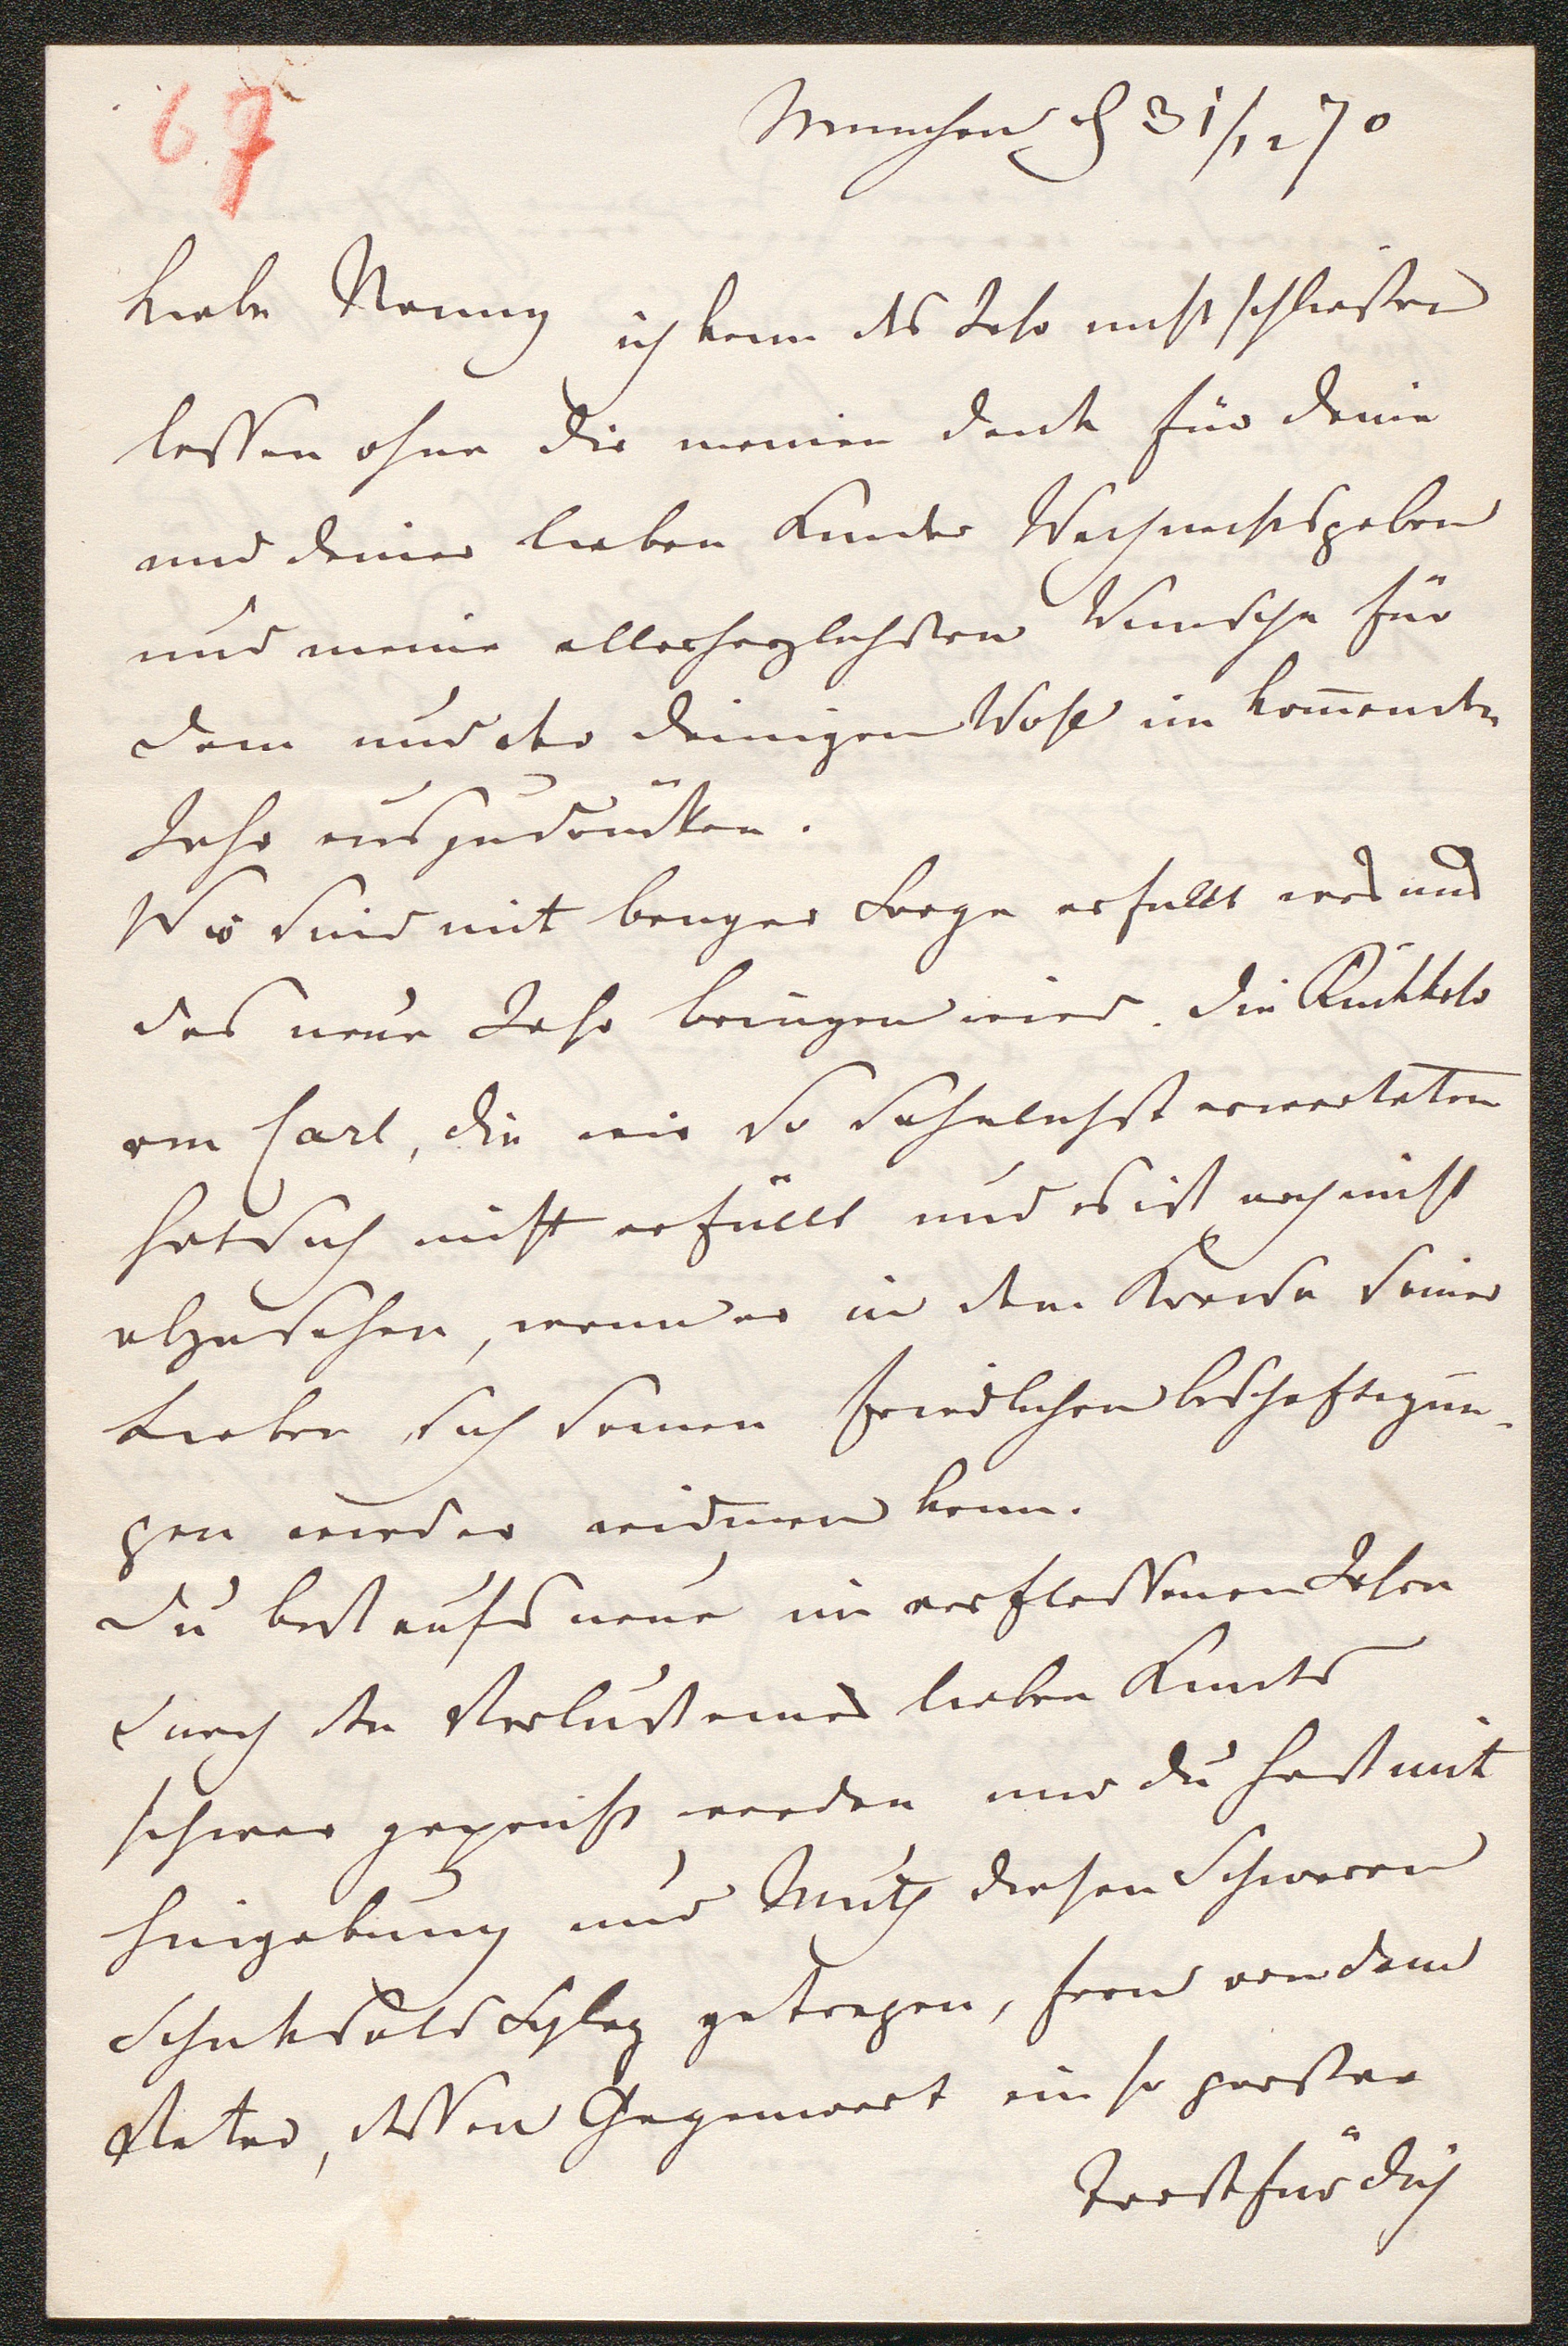 67
München d 31/12 70
Liebe Nanny ich kann das Jahr nicht schließen
lassen ohne dir meinen Dank für deine
und deiner lieben Kinder Weihnachtsgaben
und meine allerherzlichsten Wünsche für
dein und der deinigen Wohl im kom̄enden
Jahr auszudrücken.
Wir sind mit banger Sorge erfüllt was uns
das neue Jahr bringen wird. Die Rückkehr
von Carl, die wir so sehnlichst erwarteten
hat sich nicht erfüllt und es ist noch nicht
abzusehen, wann er in dem Kreise seiner
Lieben sich seinen friedlichen beschäftigun-
gen wieder widmen kann.
Du bist aufs neue im verflossenen Jahre
durch den Verlust eines lieben Kindes
schwer geprüft worden und du hast mit
Hingebung und Muth diesen schweren
Schicksals Schlag getragen, fern von dem
Vater, dessen Gegenwart ein so großer
Trost für dich